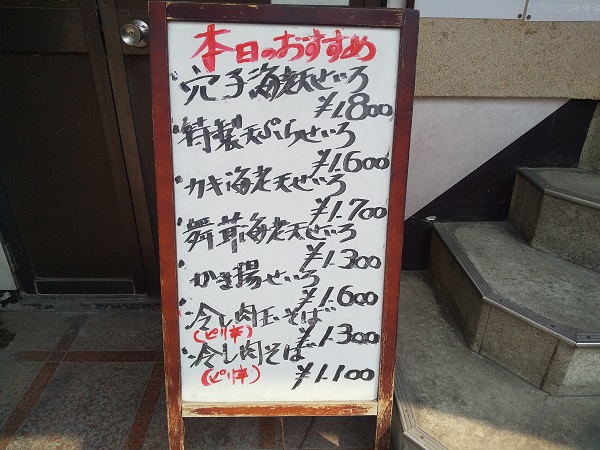 本日のおすすめ
・穴子海老天せいろ
¥1.800
・特製天ぷらせいろ
¥1.600
・カキ海老天せいろ
¥1.700
・舞茸海老天せいろ
¥1.300
・かき揚せいろ
¥1.600
・冷し肉玉そば
(ピリ辛)
¥1.300
・冷し肉そば
(ピリ辛)
¥1.100